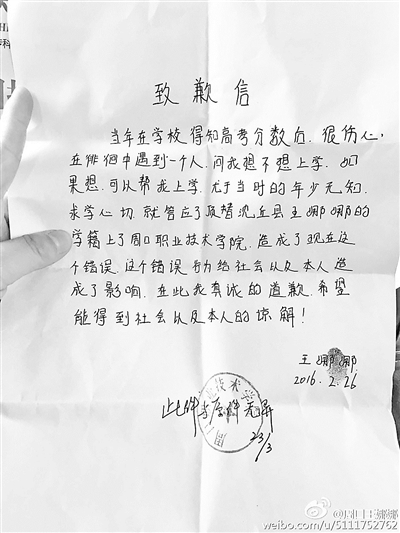 致歉信
当年在学校得知高考分数后，很伤心，
在徘徊中遇到一个人，问我想不想上学，如
果想，可以帮我上学，尤于当时的年少无知，
求学心切，就答应了顶替沈丘县王娜娜的
学籍上了周口职业技术学院，造成了现在这
个错误，这个错误行为给社会以及本人造
成了影响，在此我真诚的道歉，希望
能得到社会以及本人的谅解！
王娜娜
2016.2.26
此件与原件无异
23/3
weibo.com/u/5111752762